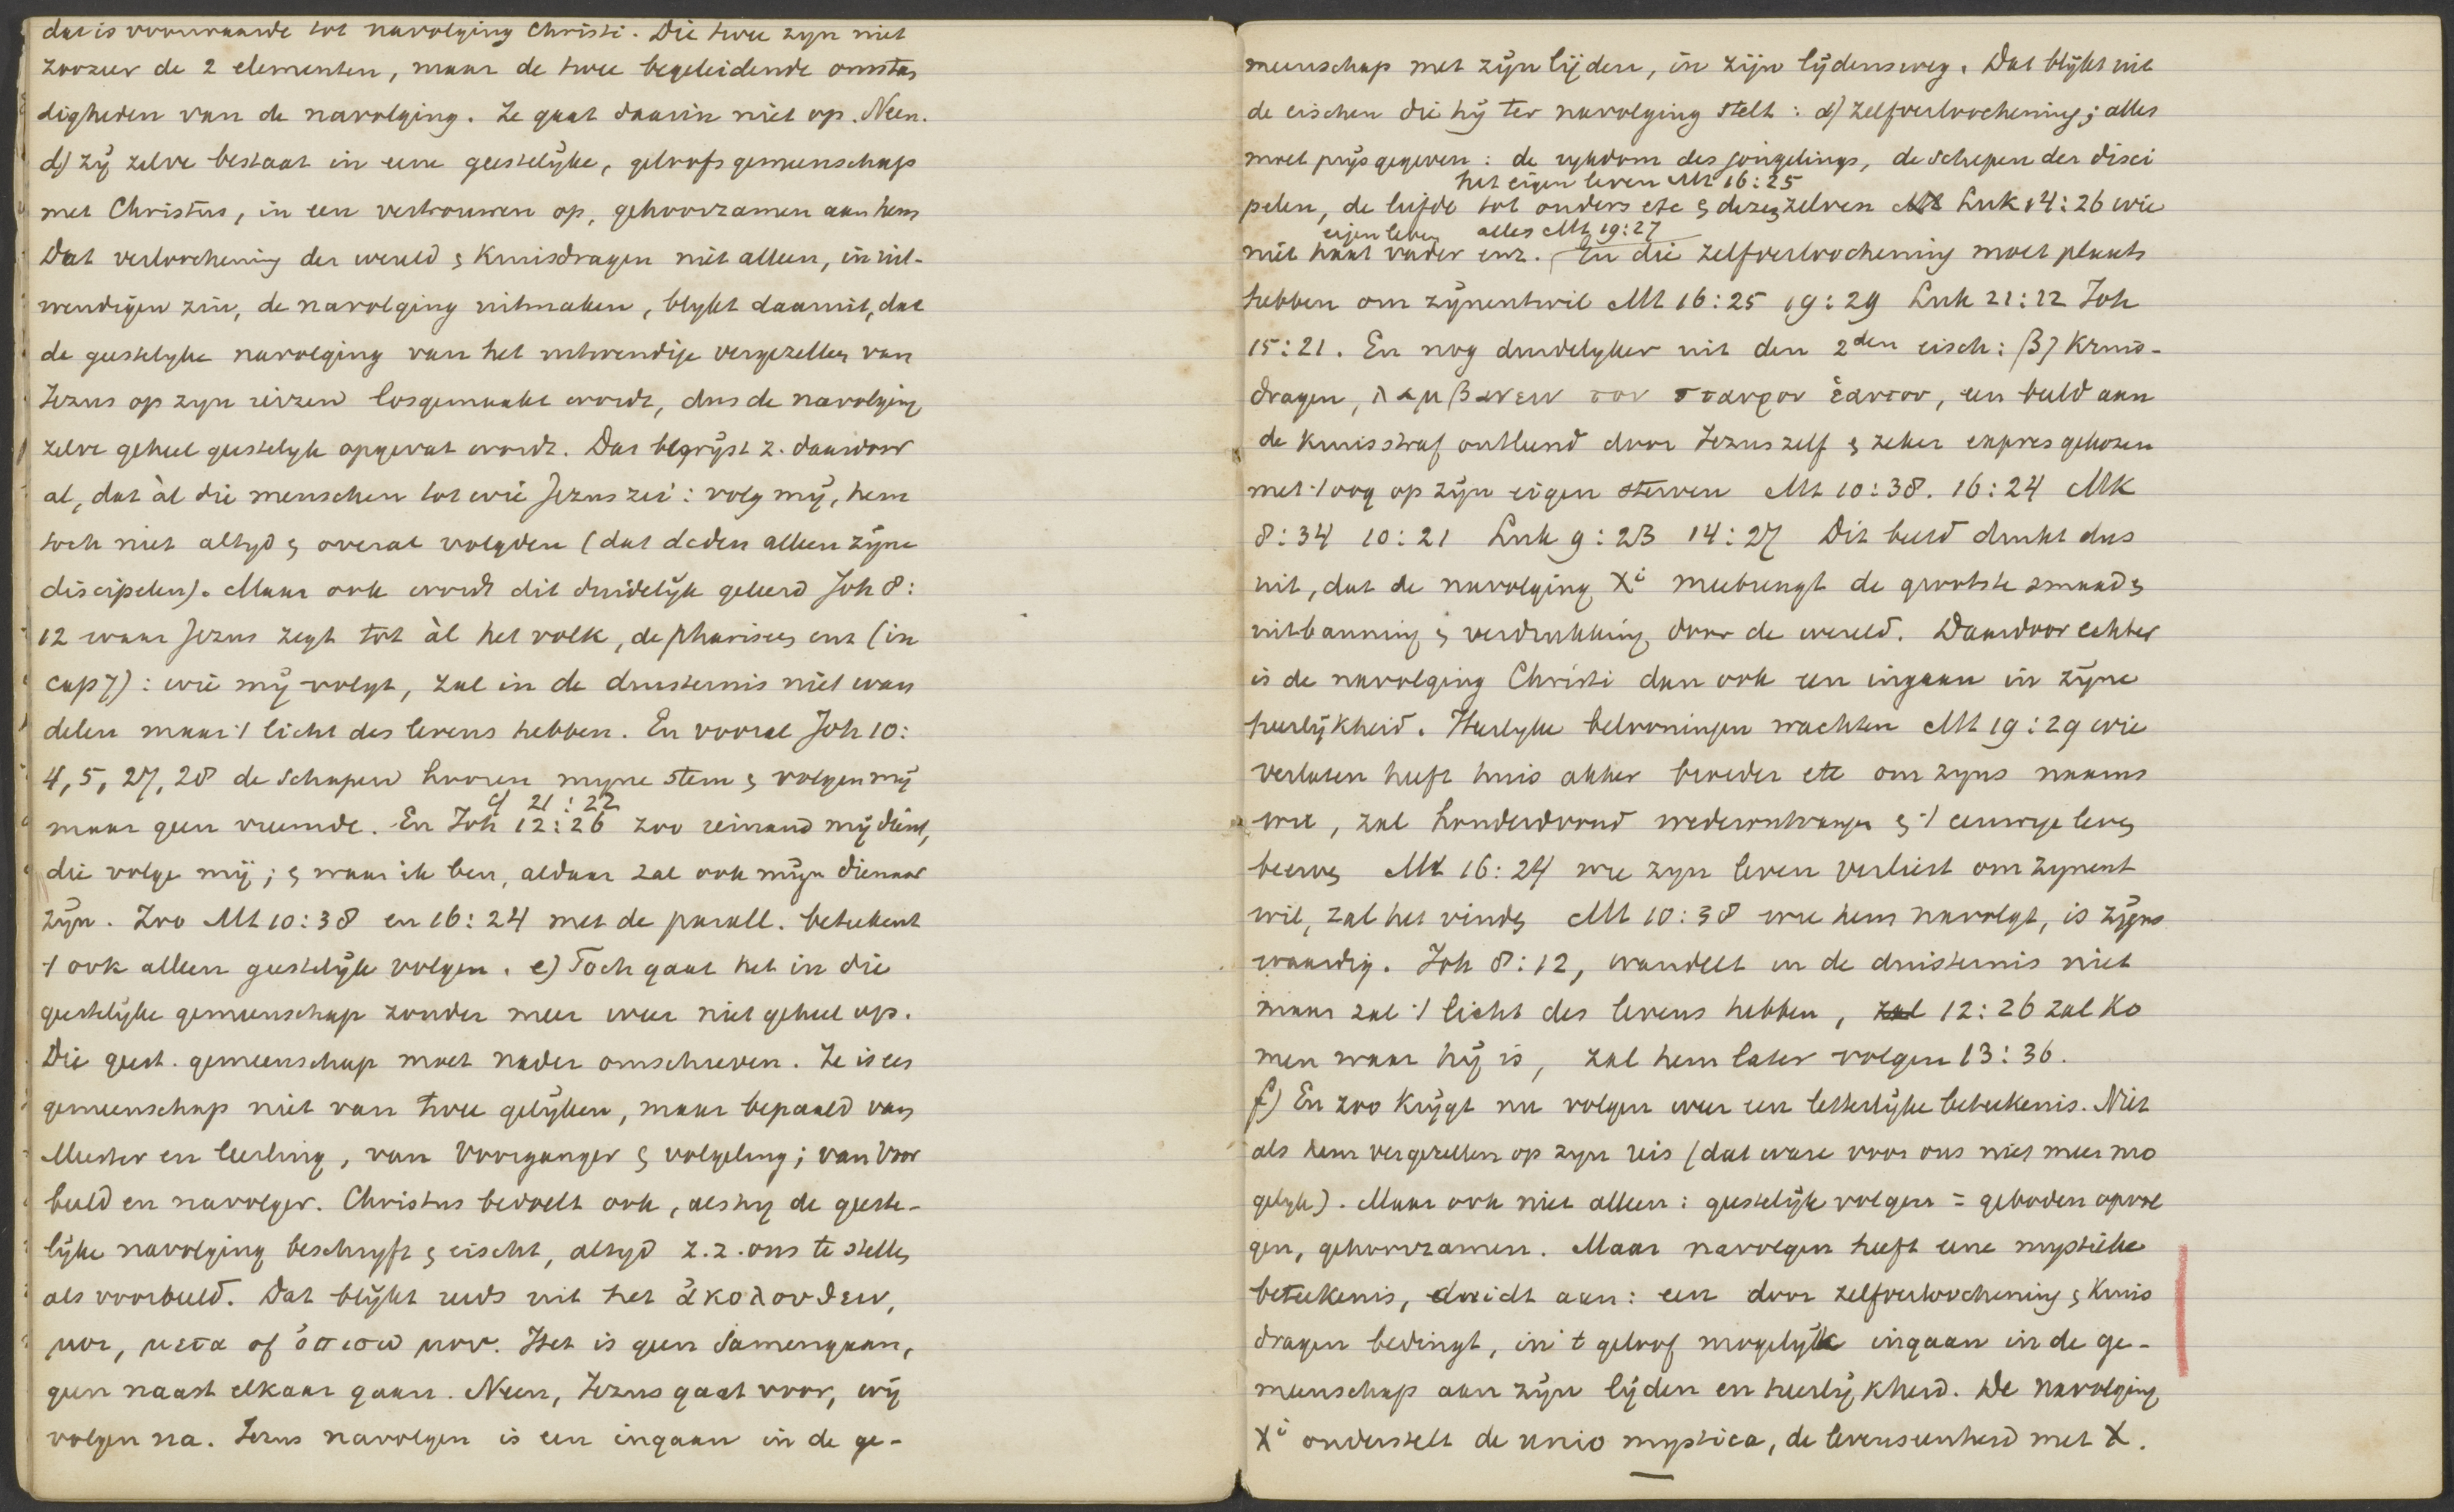 dat is voorwaarde tot navolging Christi. Die twee zyn niet
zoozeer de 2 elementen, maar de twee begeleidende omstan
digheden van de navolging. Ze gaat daarin niet op. Neen.
d) zy zelve bestaat in eene geestelyke, geloofsgemeenschap
met Christus, in een vertrouwen op, gehoorzamen aan hem
Dat verloochening der wereld & kruisdragen niet alleen, in uit-
wendigen zin, de navolging uitmaken, blykt daaruit, dat
de geestelyke navolging van het uitwendige vergezellen van
Jezus op zyn reizen losgemaakt wordt, dus de navolging
zelve geheel geestelyk opgevat wordt. Das begrypt z. daardoor
al, dat àl die menschen tot wie Jezus zei: volg my, hem
toch niet altyd & overal volgden (dat deden alleen zyne
discipelen). Maar ook wordt dit duidelyk geleerd Joh 8:
12 waar Jezus zegt tot àl het volk, de pharisees enz (in
cap 7): wie my volgt, zal in de duisternis niet wan
delen maar 't licht des levens hebben. En vooral Joh 10:
4, 5, 27, 28 de schapen hooren myne stem & volgen my
cf 21:22
maar geen vreemde. En Joh 12:26 zoo iemand my dient,
die volge my; & waar ik ben, aldaar zal ook myn dienaar
zyn. Zoo Mt 10:38 en 16:24 met de parall. beteekent
't ook alleen geestelyk volgen. e) Toch gaat het in die
geestelyke gemeenschap zonder meer weer niet geheel op.
Die geest. gemeenschap moet nader omschreven. Ze is een
gemeenschap niet van twee gelyken, maar bepaald van
Meester en leerling, van Voorganger & volgeling; van Voor
beeld en navolger. Christus bedoelt ook, als hy de geeste-
lyke navolging beschryft & eischt, altyd z.z. ons te stellen
als voorbeeld. Dat blykt reeds uit het ἀκολουθειν,
μοι, μετα of ὀπισω μου. Het is geen samengaan,
geen naast elkaar gaan. Neen, Jezus gaat voor, wy
volgen na. Jezus navolgen is een ingaan in de ge-
meenschap met zyn lyden, in zyn lydensweg. Dat blykt uit
de eischen die hy ter navolging stelt: α) zelfverloochening; alles
moet prys gegeven: de rykdom des jongelings, de schepen der disci
het eigen leven Mt 16:25
pelen, de liefde tot ouders etc & dezen zelven Luk 14:26 wie
eigen leven alles Mt 19:27
niet haat vader enz. En die zelfverloochening moet plaats
hebben om zynentwil Mt 16:25 19:29 Luk 21:12 Joh
15:21. En nog duidelyker uit den 2den eisch: β) Kruis-
dragen, λαμβανειν τον σταυρον ἑαυτου, een beeld aan
de kruisstraf ontleend door Jezus zelf & zeker expres gekozen
met 't oog op zyn eigen sterven Mt 10:38. 16:24 Mk
8:34 10:21 Luk 9:23 14:27 Dit beeld drukt dus
uit, dat de navolging Xi meebrengt de grootste smaad &
uitbanning & verdrukking door de wereld. Daardoor echter
is de navolging Christi dan ook een ingaan in zyne
heerlykheid. Heerlyke belooningen wachten Mt 19:29 wie
verlaten heeft huis akker broeder etc om zyns naams
wil, zal honderdvoud wederontvangen & 't eeuwige leven
beerven Mt 16:24 wie zyn leven verliest om zynent
wil, zal het vinden Mt 10:38 wie hem navolgt, is zyns
waardig. Joh 8:12, wandelt in de duisternis niet
maar zal 't licht des levens hebben, zal 12:26 zal ko
men waar hy is, zal hem later volgen 13:36.
f) En zoo krygt nu volgen weer een letterlyke beteekenis. Niet
als hem vergezellen op zyn reis (dat ware voor ons niet meer mo
gelyk). Maar ook niet alleen: geestelyk volgen = geboden opvol
gen, gehoorzamen. Maar navolgen heeft eene mystieke
beteekenis, duidt aan: een door zelfverloochening & kruis
dragen bedingt, in 't geloof mogelyk ingaan in de ge-
meenschap aan zyn lyden en heerlykheid. De navolging
Xi onderstelt de unio mystica, de levenseenheid met X.